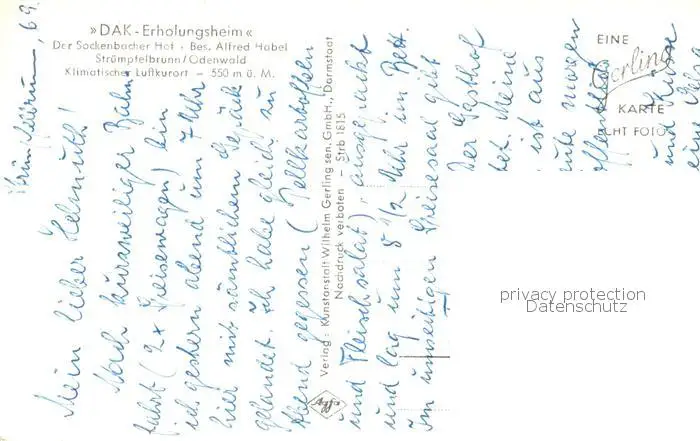 »DAK-Erholungsheim«
Der Sockenbacher Hof · Bes. Alfred Habel
Strümpfelbrunn/Odenwald
Klimatischer Luftkurort – 550 m ü. M.
69.
Mein lieber Helmuth!
Nach kurzweiliger Bahn
fahrt (2 x Speisewagen) bin
ich gestern abend um 7 Uhr
hier mit sämtlichem Gepäck
gelandet. Ich habe gleich zu
Abend gegessen (Pellkartoffeln
und Fleischsalat), ausgepackt
und lag um 8 1/2 Uhr im Bett.
Im umseitigen Speisesaal gibt
Der Gasthof
Meine
ist aus
morgen
und Grüsse
Verlag: Kunstanstalt Wilhelm Gerling sen. GmbH., Darmstadt
Nachdruck verboten – Strb 1815
Agfa
EINE
Gerling
KARTE
CHT FOTO
privacy protection
Datenschutz